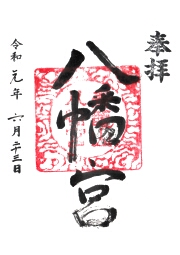 奉拝
八幡宮
令和元年 六月二十三日